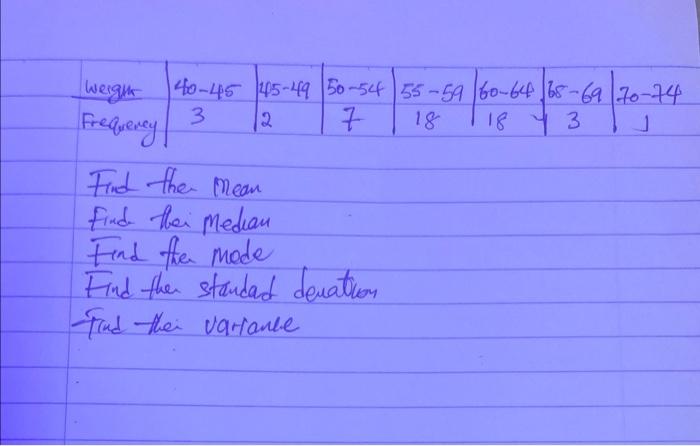 Weight 40-45 45-49 50-54 55-59 60-64 65-69 70-74
Frequency 3 2 7 18 18 3 1
Find the mean
Find the median
Find the mode
Find the standad deviation
Find the variance